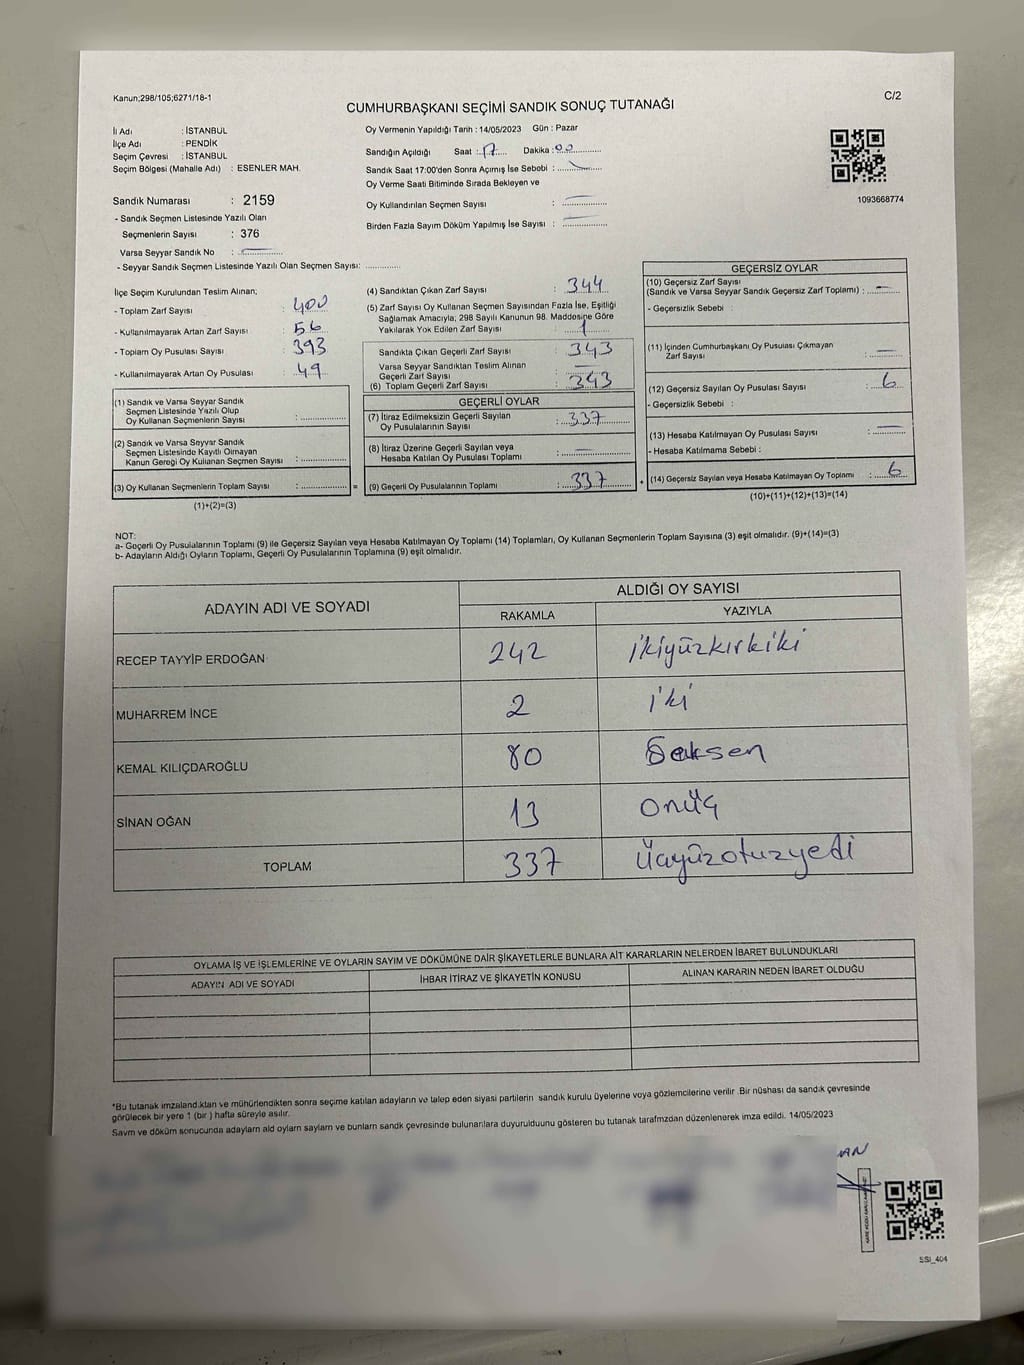 Kanun;298/105;6271/18-1
C/2
CUMHURBAŞKANI SEÇİMİ SANDIK SONUÇ TUTANAĞI
İli Adı : İSTANBUL
İlçe Adı : PENDİK
Seçim Çevresi : İSTANBUL
Seçim Bölgesi (Mahalle Adı) : ESENLER MAH.
Sandık Numarası : 2159
- Sandık Seçmen Listesinde Yazılı Olan
Seçmenlerin Sayısı : 376
Varsa Seyyar Sandık No :
- Seyyar Sandık Seçmen Listesinde Yazılı Olan Seçmen Sayısı:
Oy Vermenin Yapıldığı Tarih : 14/05/2023 Gün : Pazar
Sandığın Açıldığı Saat : 17 Dakika : 00
Sandık Saat 17:00'den Sonra Açımış İse Sebebi :
Oy Verme Saati Bitiminde Sırada Bekleyen ve
Oy Kullandırılan Seçmen Sayısı :
Birden Fazla Sayım Döküm Yapılmış İse Sayısı :
1093668774
İlçe Seçim Kurulundan Teslim Alınan;
- Toplam Zarf Sayısı : 400
- Kullanılmayarak Artan Zarf Sayısı : 56
- Toplam Oy Pusulası Sayısı : 393
- Kullanılmayarak Artan Oy Pusulası : 49
(1) Sandık ve Varsa Seyyar Sandık
Seçmen Listesinde Yazılı Olup
Oy Kullanan Seçmenlerin Sayısı :
(2) Sandık ve Varsa Seyyar Sandık
Seçmen Listesinde Kayıtlı Olmayan
Kanun Gereği Oy Kullanan Seçmen Sayısı :
(3) Oy Kullanan Seçmenlerin Toplam Sayısı : =
(1)+(2)=(3)
(4) Sandıktan Çıkan Zarf Sayısı : 344
(5) Zarf Sayısı Oy Kullanan Seçmen Sayısından Fazla İse, Eşitliği
Sağlamak Amacıyla; 298 Sayılı Kanunun 98. Maddesine Göre
Yakılarak Yok Edilen Zarf Sayısı : 1
Sandıkta Çıkan Geçerli Zarf Sayısı : 343
Varsa Seyyar Sandıktan Teslim Alınan
Geçerli Zarf Sayısı
(6) Toplam Geçerli Zarf Sayısı : 343
GEÇERLİ OYLAR
(7) İtiraz Edilmeksizin Geçerli Sayılan
Oy Pusulalarının Sayısı : 337
(8) İtiraz Üzerine Geçerli Sayılan veya
Hesaba Katılan Oy Pusulası Toplamı :
(9) Geçerli Oy Pusulalarının Toplamı : 337 +
GEÇERSİZ OYLAR
(10) Geçersiz Zarf Sayısı
(Sandık ve Varsa Seyyar Sandık Geçersiz Zarf Toplamı) :
- Geçersizlik Sebebi :
(11) İçinden Cumhurbaşkanı Oy Pusulası Çıkmayan
Zarf Sayısı :
(12) Geçersiz Sayılan Oy Pusulası Sayısı : 6
- Geçersizlik Sebebi :
(13) Hesaba Katılmayan Oy Pusulası Sayısı :
- Hesaba Katılmama Sebebi :
(14) Geçersiz Sayılan veya Hesaba Katılmayan Oy Toplamı : 6
(10)+(11)+(12)+(13)=(14)
NOT:
a- Geçerli Oy Pusulalarının Toplamı (9) ile Geçersiz Sayılan veya Hesaba Katılmayan Oy Toplamı (14) Toplamları, Oy Kullanan Seçmenlerin Toplam Sayısına (3) eşit olmalıdır. (9)+(14)=(3)
b- Adayların Aldığı Oyların Toplamı, Geçerli Oy Pusulalarının Toplamına (9) eşit olmalıdır.
ADAYIN ADI VE SOYADI
ALDIĞI OY SAYISI
RAKAMLA YAZIYLA
RECEP TAYYİP ERDOĞAN 242 ikiyüzkırkiki
MUHARREM İNCE 2 iki
KEMAL KILIÇDAROĞLU 80 Seksen
SİNAN OĞAN 13 onüç
TOPLAM 337 üçyüzotuzyedi
OYLAMA İŞ VE İŞLEMLERİNE VE OYLARIN SAYIM VE DÖKÜMÜNE DAİR ŞİKAYETLERLE BUNLARA AİT KARARLARIN NELERDEN İBARET BULUNDUKLARI
ADAYIN ADI VE SOYADI İHBAR İTİRAZ VE ŞİKAYETİN KONUSU ALINAN KARARIN NEDEN İBARET OLDUĞU
*Bu tutanak imzalandıktan ve mühürlendikten sonra seçime katılan adayların ve talep eden siyasi partilerin sandık kurulu üyelerine veya gözlemcilerine verilir .Bir nüshası da sandık çevresinde
görülecek bir yere 1 (bir ) hafta süreyle asılır.
Sayım ve döküm sonucunda adayların ald oyların sayların ve bunların sandk çevresinde bulunanlara duyurulduunu gösteren bu tutanak tarafmzdan düzenlenerek imza edildi. 14/05/2023
SSI_404